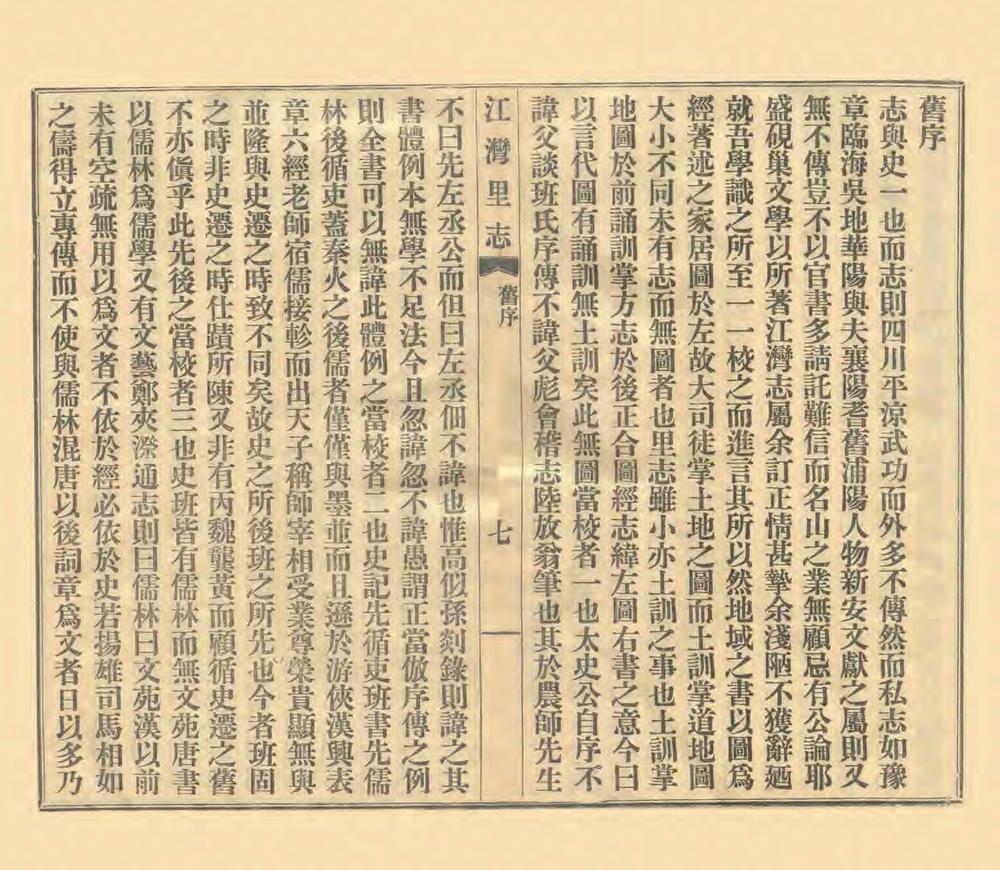 舊序
志與史一也而志則四川平涼武功而外多不傳然而私志如豫
章臨海吳地華陽與夫襄陽耆舊浦陽人物新安文獻之屬則又
無不傳豈不以官書多請託難信而名山之業無顧忌有公論耶
盛硯巢文學以所著江灣志屬余訂正情甚摯余淺陋不獲辭廼
就吾學識之所至一一校之而進言其所以然地域之書以圖爲
經著述之家居圖於左故大司徒掌土地之圖而土訓掌道地圖
大小不同未有志而無圖者也里志雖小亦土訓之事也土訓掌
地圖於前誦訓掌方志於後正合圖經志緯左圖右書之意今曰
以言代圖有誦訓無土訓矣此無圖當校者一也太史公自序不
諱父談班氏序傳不諱父彪會稽志陸放翁筆也其於農師先生
江灣里志
舊序
七
不曰先左丞公而但曰左丞佃不諱也惟高似孫剡錄則諱之其
書體例本無學不足法今且忽諱忽不諱愚謂正當倣序傳之例
則全書可以無諱此體例之當校者二也史記先循吏班書先儒
林後循吏蓋秦火之後儒者僅僅與墨並而且遜於游俠漢興表
章六經老師宿儒接軫而出天子稱師宰相受業尊榮貴顯無與
並隆與史遷之時致不同矣故史之所後班之所先也今者班固
之時非史遷之時仕蹟所陳又非有丙魏龔黃而顧循史遷之舊
不亦傎乎此先後之當校者三也史班皆有儒林而無文苑唐書
以儒林爲儒學又有文藝鄭夾漈通志則曰儒林曰文苑漢以前
未有空疏無用以爲文者不依於經必依於史若揚雄司馬相如
之儔得立專傳而不使與儒林混唐以後詞章爲文者日以多乃